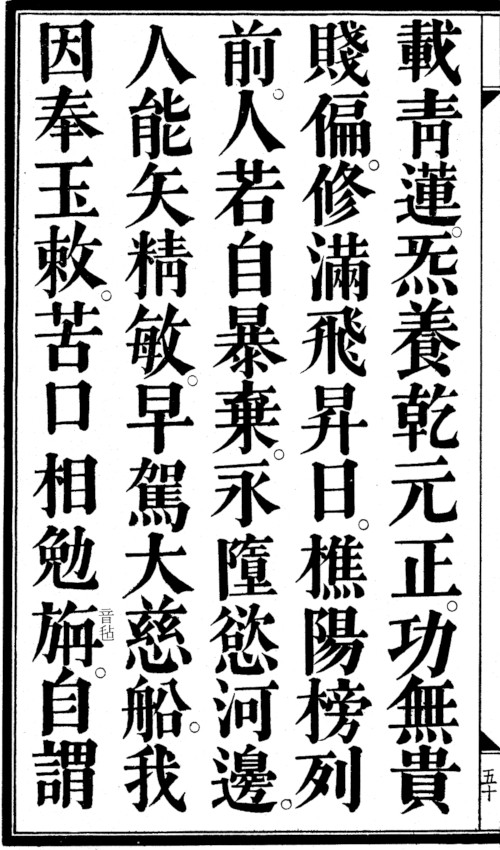 載青蓮。炁養乾元正。功無貴
賤偏。修滿飛昇日。樵陽榜列
前。人若自暴棄。永墮慾河邊。
人能矢精敏。早駕大慈船。我
因奉玉敕。苦口相勉旃音毡。自謂
五十